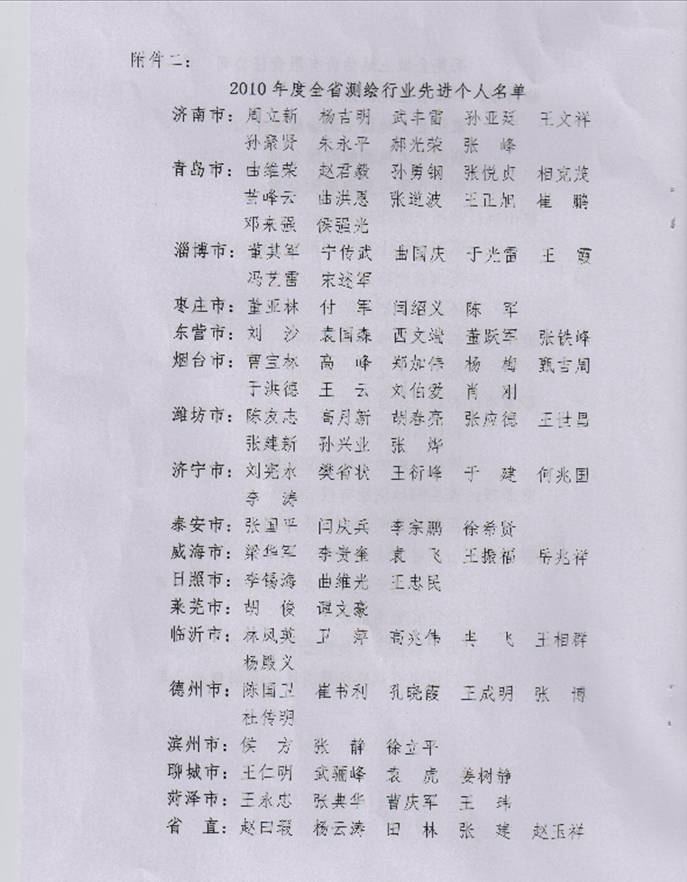 附件二：
2010年度全省测绘行业先进个人名单
济南市：周立新 杨吉明 武丰雷 孙亚廷 王文祥
孙聚贤 朱永平 郝光荣 张 峰
青岛市：曲维荣 赵君毅 孙勇钢 张悦贞 相克茂
芸峰云 曲洪恩 张道波 王正旭 崔 鹏
邓来强 侯强光
淄博市：董其军 宁传武 曲国庆 于光雷 王 霞
冯艺雷 宋遂军
枣庄市：董亚林 付 军 闫绍义 陈 军
东营市：刘 沙 袁国森 西文端 董跃军 张铁峰
烟台市：曹宝林 高 峰 郑加伟 杨 梅 甄吉周
于洪德 王 云 刘伯爱 肖 刚
潍坊市：陈友志 高月新 胡春亮 张应德 王世昌
张建新 孙兴业 张 烨
济宁市：刘宪永 樊省状 王衍峰 于 建 何兆国
李 涛
泰安市：张国平 闫庆兵 李宗鹏 徐希贤
威海市：梁华军 李贵奎 袁 飞 王振福 岳兆祥
日照市：李锡海 曲维光 王忠民
莱芜市：胡 俊 谭文豪
临沂市：林凤英 卫 萍 高兆伟 冉 飞 王相群
杨殿义
德州市：陈国卫 崔书利 孔晓霞 王成明 张 博
杜传明
滨州市：侯 方 张 静 徐立平
聊城市：王仁明 武骊峰 袁 虎 姜树静
菏泽市：王永忠 张典华 曹庆军 王 玮
省 直：赵曰瑕 杨云涛 田 林 张 建 赵玉祥